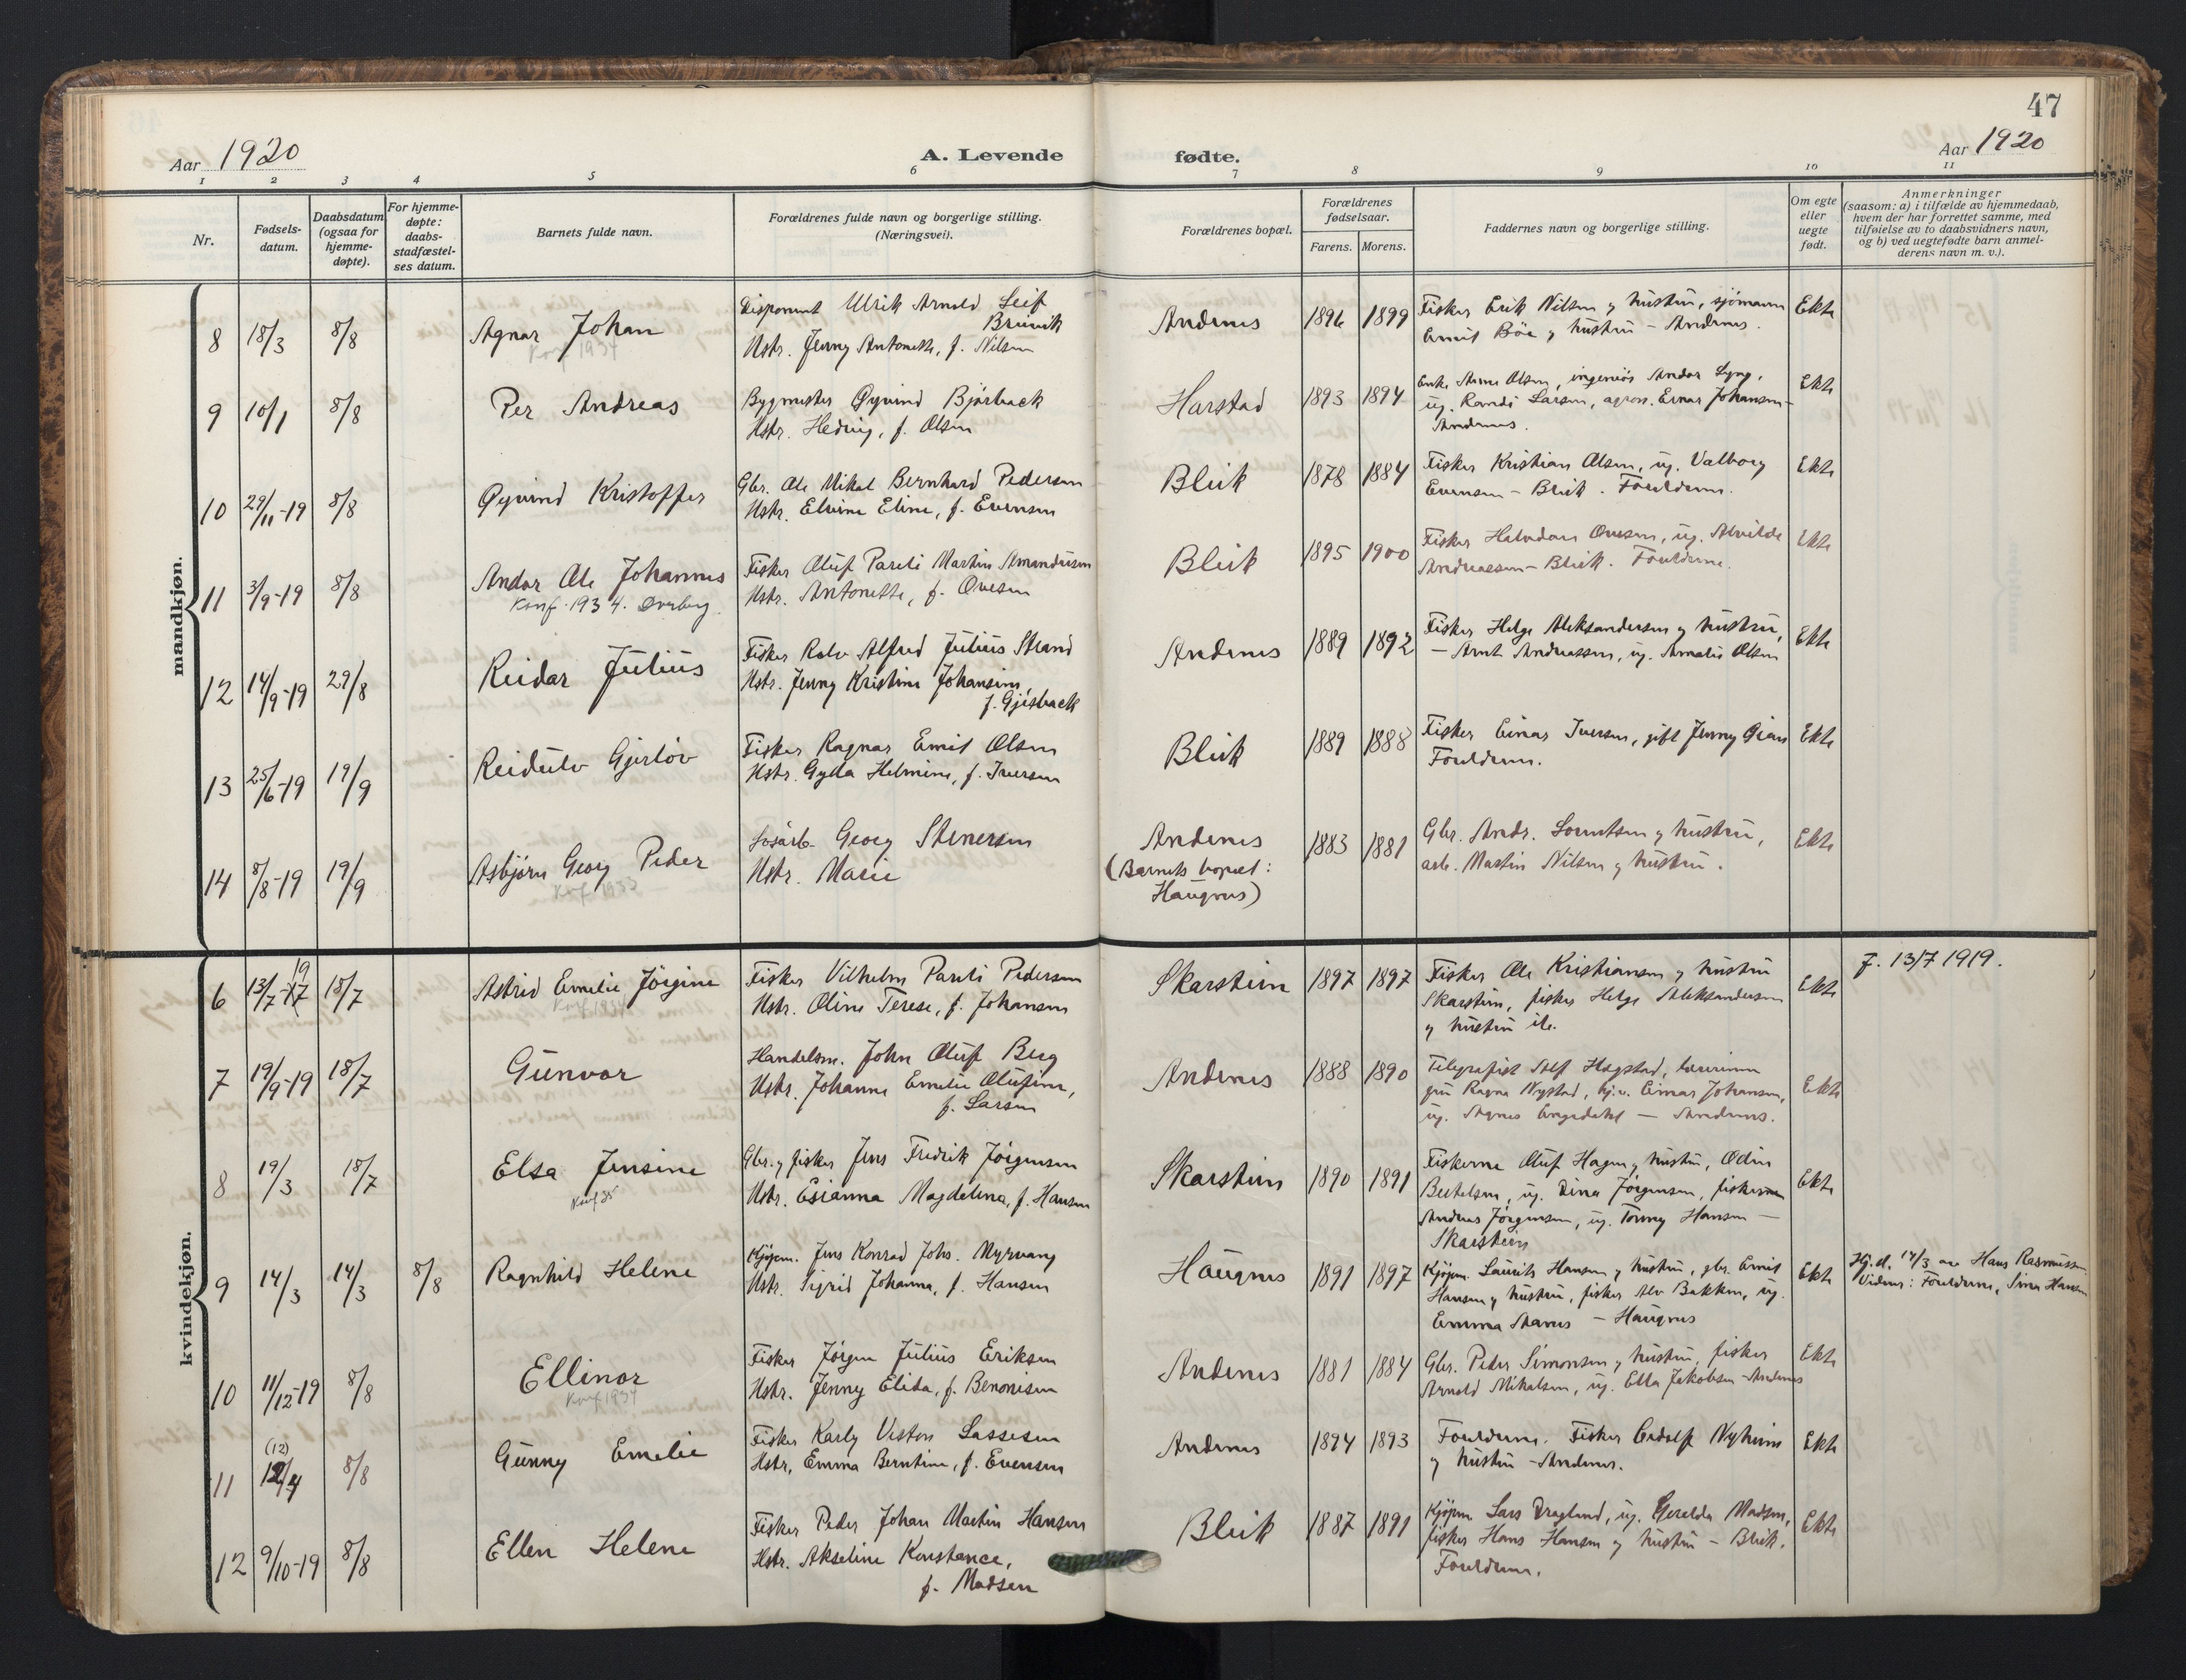 47
Aar 1920
A. Levende
fødte.
Aar 1920
1 2 3 4 5 6 7 8 9 10 11
Nr.
Fødsels-
datum.
Daabsdatum
(ogsaa for
hjemme-
døpte).
For hjemme-
døpte:
daabs-
stadfæstel-
ses datum.
Barnets fulde navn.
Forældrenes fulde navn og borgerlige stilling.
(Næringsvei).
Forældrenes bopæl.
Forældrenes
fødselsaar.
Farens. Morens.
Faddernes navn og borgerlige stilling.
Om egte
eller
uegte
født.
Anmerkninger
(saasom: a) i tilfælde av hjemmedaab,
hvem der har forrettet samme, med
tilføielse av to daabsvidners navn,
og b) ved uegtefødte barn anmel-
derens navn m. v.).
mandkjøn.
8 18/3 8/8 Agnar Johan
Konf 1934
Disponent Ulrik Arnold Leif
Brunvik
Hstr. Jenny Antonette, f. Nilsen
Andenes 1896 1899
Fisker Erik Nilsen og hustru, sjømann
Emil Böe og hustru - Andenes.
Ekte
9 10/1 8/8 Per Andreas
Bygmester Øyvind Bjørback
Hstr. Hedvig, f. Olsen
Harstad 1893 1894
Enke Anna Olsen, ingeniør Andor Lyng,
ug. Randi Larsen, agron. Einar Johansen -
Andenes.
Ekte
10 29/11-19 8/8 Øyvind Kristoffer
Gbr. Ole Mikal Bernhard Pedersen
Hstr. Elvine Eline, f. Evensen
Bleik 1878 1884
Fisker Kristian Olsen, ug. Valborg
Evensen - Bleik. Foreldrene.
Ekte
11 3/9-19 8/8 Andor Ole Johannes
Konf. 1934. Dverberg.
Fisker Oluf Pareli Martin Amundsen
Hstr. Antonette, f. Ovesen
Bleik 1895 1900
Fisker Halvdan Ovesen, ug. Alvilde
Andreassen - Bleik. Foreldrene.
Ekte
12 14/9-19 29/8 Reidar Julius
Fisker Rolv Alfred Julius Strand
Hstr. Jenny Kristine Johansine
f. Gjøsback
Andenes 1889 1892
Fisker Helge Aleksandersen og hustru,
- Arnt Andreassen, ug. Amalie Olsen
Ekte
13 25/6-19 19/9 Reidulv Gjerlöv
Fisker Ragnar Emil Olsen
Hstr. Gyda Helmine, f. Iversen
Bleik 1889 1888
Fisker Einar Iversen, gift Jenny
Foreldrene.
Ekte
14 8/8-19 19/9 Asbjørn Georg Peder
Konf 1933
Løsarb. Georg Stenersen
Hstr. Marie
Andenes
(Barnets bopæl:
Haugnes)
1883 1881
Gbr. Andr. Lorentsen og hustru,
arb. Martin Nilsen og hustru.
Ekte
kvindekjøn.
6 13/7-17 19 18/7 Astrid Emelie Jörgine
Konf 1934
Fisker Vilhelm Pareli Pedersen
Hstr. Oline Terese, f. Johansen
Skarstein 1897 1897
Fisker Ole Kristiansen og hustru
Skarstein, fisker Helge Aleksandersen
og hustru
Ekte
f. 13/7 1919.
7 19/9-19 18/7 Gunvor
Handelsm. John Oluf Berg
Hstr. Johanna Emelie Olufine,
f. Larsen
Andenes 1888 1890
Telegrafist Alf Hagstad, lærerinne
fru Ragna Nygstad, hj.v. Einar Johansen,
ug. Agnes Engedahl - Andenes.
Ekte
8 19/3 18/7 Elsa Jensine
Konf 35
Gbr. og fisker Jens Fredrik Jörgensen
Hstr. Esianna Magdelena, f. Hansen
Skarstein 1890 1891
Fiskerne Oluf Hagen og hustru, Odin
Bertelsen, ug. Dina Jørgensen, fiskerne
Andreas Jørgensen, ug. Tonny Hansen -
Skarstein
Ekte
9 14/3 14/3 8/8 Ragnhild Helene
Kjøpm. Jens Konrad Johs. Myrvang
Hstr. Sigrid Johanna, f. Hansen
Haugnes 1891 1897
Kjøpm. Laurits Hansen og hustru, gbr. Emil
Hansen og hustru, fisker Alv Bakken, ug.
Emma Aanes - Haugnes
Ekte
Hj.d. 14/3 av Hans Rasmussen
Vidner: Foreldrene, Sina Hansen
10 11/12-19 8/8 Ellinor
Konf 1934
Fisker Jörgen Julius Eriksen
Hstr. Jenny Elida, f. Benonisen
Andenes 1881 1884
Gbr. Peder Simonsen og hustru, fisker
Arnold Mikalsen, ug. Ella Jakobsen - Andenes
Ekte
11 (12) 12/4 8/8 Gunny Emelie
Fisker Karly Veston Lassesen
Hstr. Emma Berntine, f. Evensen
Andenes 1894 1893
Foreldrene. Fisker Nyheim
og hustru - Andenes.
Ekte
12 9/10-19 8/8 Ellen Helene
Fisker Peder Johan Martin Hansen
Hstr. Akseline Konstance,
f. Madsen
Bleik 1887 1891
Kjøpm Lars Draglund, ug. Geralda Madsen,
fisker Hans Hansen og hustru - Bleik.
Foreldrene.
Ekte